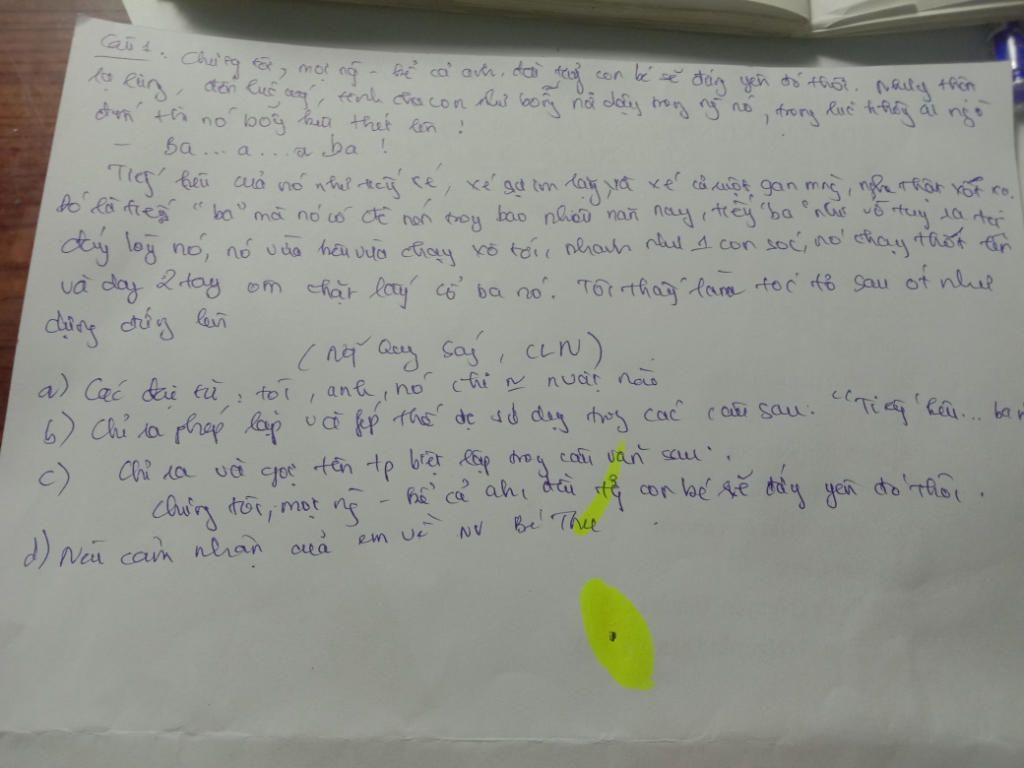 Câu 1. Chúng tôi, mọi ng - kể cả anh, đều tưởg con bé sẽ đứng yên đó thôi. Nhưng thật
lạ lùng, đến lúc ấy, tình cha con như bỗng nổi dậy trong ng nó, trong lúc không ai ngờ
đến thì nó bỗg kêu thét lên!
- Ba...a...a ba!
Tiếg kêu của nó như tiếg xé, xé sự im lặg và xé cả ruột gan mng, nghe thật xót xa.
Đó là tiếg "ba" mà nó cố đè nén trog bao nhiêu năm nay, tiếg "ba" như vỡ tug ra từ
đáy lòg nó, nó vừa kêu vừa chạy xô tới, nhanh như 1 con sóc, nó chạy thót lên
và dag 2 tay ôm chặt lấy cổ ba nó. Tôi thấy làn tóc tơ sau ót như
dựng đứng lên
(Ng Quag Ság, CLN)
a) Các đại từ: tôi, anh, nó chỉ nvật nào
b) Chỉ ra phép lặp và phép thế đc sử dụg trog các câu sau: "Tiếg kêu... ba n
c) Chỉ ra và gọi tên tp biệt lập trog câu văn sau:
Chúng tôi, mọi ng - kể cả ah, đều tg con bé sẽ đứng yên đó thôi.
d) Nêu cảm nhận của em về NV Bé Thu